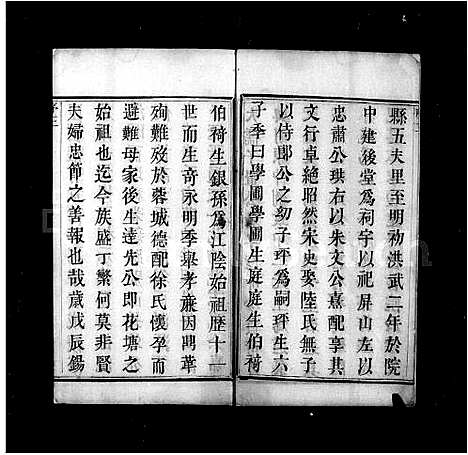 縣五夫里至明初洪武二年於院
中建後堂爲祠宇以祀屏山左以
忠肅公珙右以朱文公熹配享其
文行卓絶昭然宋史娶陸氏無子
以侍郎公之幼子玶爲嗣玶生六
子季曰學圃學圃生庭庭生伯裿
伯裿生銀孫爲江陰始祖歷十一
世而生奇永明季舉孝亷因闖葦
殉難歿於蓉城德配徐氏懷孕而
避難母家後生達先公即花塘之
始祖也迄今族盛丁繁何莫非賢
夫婦忠節之善報也哉歲戊辰錫